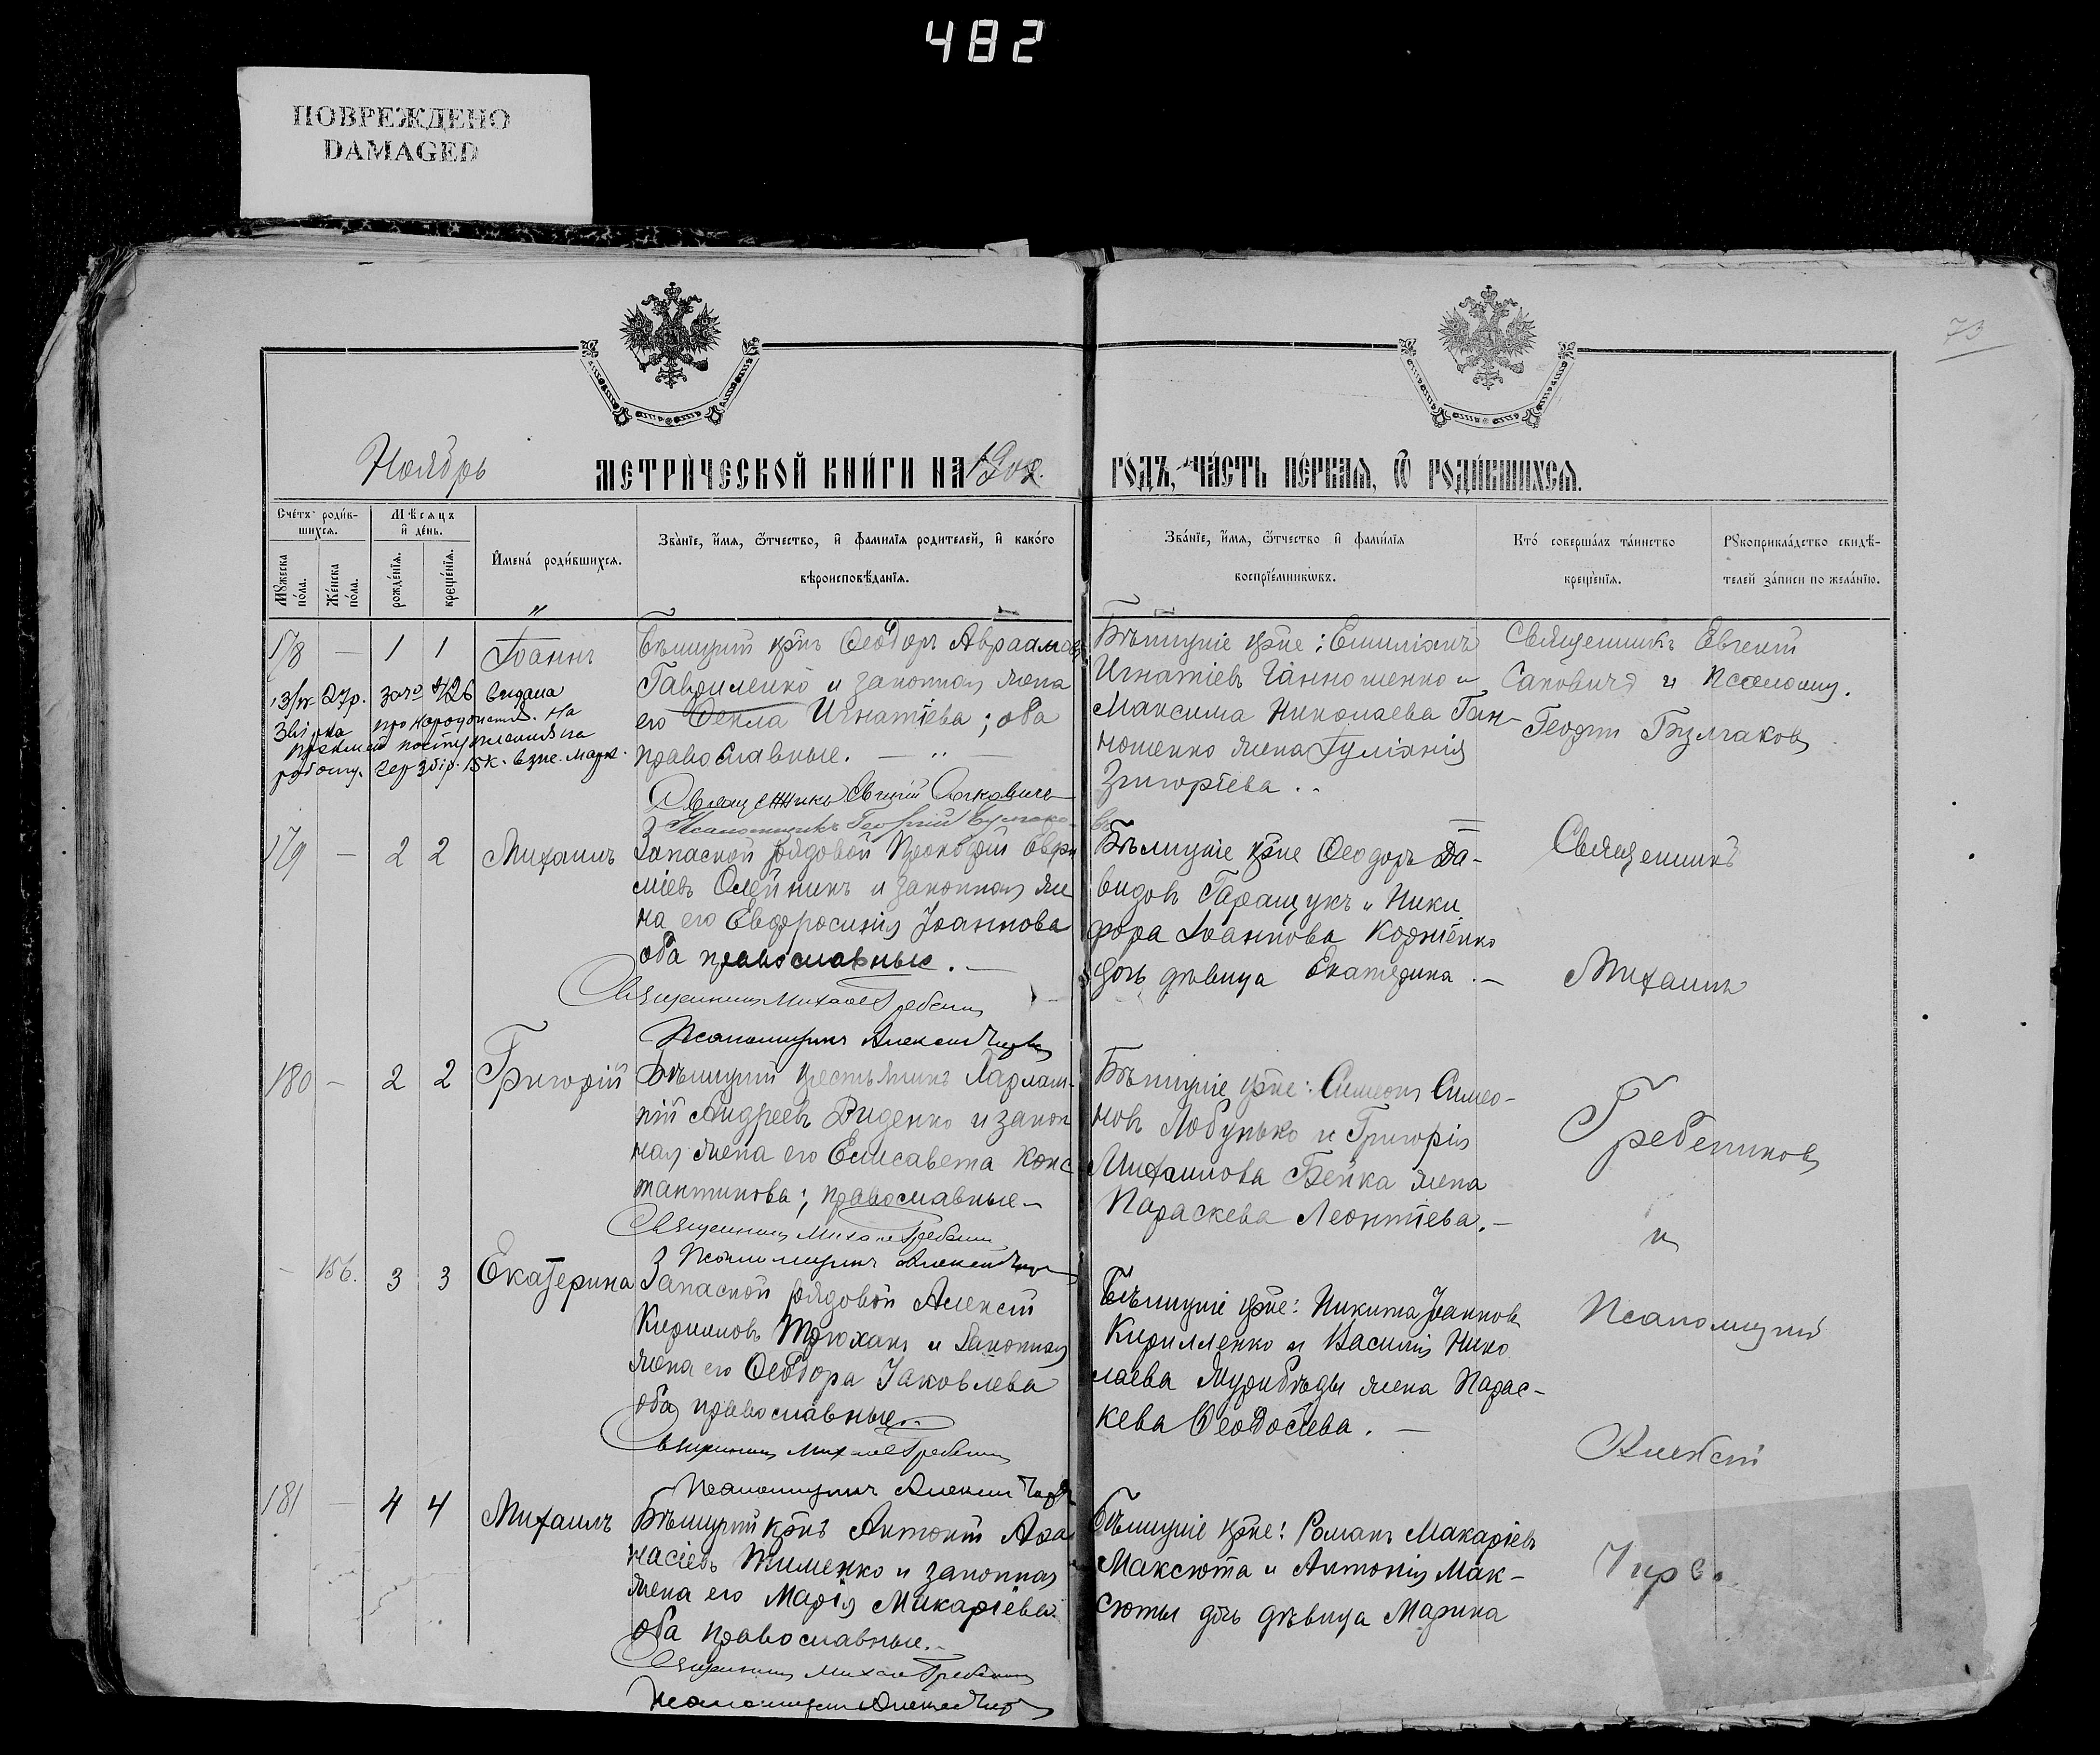 482
ПОВРЕЖДЕНО
DAMAGED
73
Ноябрь
МЕТРИ́ЧЕСКОЙ КНИ́ГИ НА 1902.
ГО́ДЪ, ЧА́СТЬ ПЕ́РВАѦ, Ѿ РОДИ́ВШИХСѦ.
Сче́тъ роди́в-
шихсѧ.
Мѣсяцъ
и де́нь.
Мꙋжеска
по́ла.
Же́нска
по́ла.
рожде́нїѧ.
креще́нїѧ.
Имена́ роди́вшихсѧ.
Зва́нїе, и́мѧ, ѻ́тчество, и фами́лїѧ родителей, и како́го
вѣроисповѣ́данїѧ.
Зва́нїе, и́мѧ, ѻ́тчество и фами́лїѧ
воспрїе́мникѡвъ.
Кто́ соверша́лъ та́инство
креще́нїѧ.
Рꙋкоприкла́дство свидѣ́-
телей за́писи по жела́нїю.
178 — 1 1 Іоаннъ
Бѣлицкій крнъ Ѳеодоръ Авраамовъ
Гавриленко и законная жена
его Ѳекла Игнатіева; оба
православные. — " —
Священникъ Евгеній Саковичъ
Псаломщикъ Георгій Булгаковъ
Бѣлицкіе крне: Емиліанъ
Игнатіевъ Ганношенко и
Максима Николаева Ган-
ношенко жена Іуліанія
Григоріева..
Священникъ Евгеній
Саковичъ и Псаломщ.
Георгій Булгаковъ
27р. 4/26 видана
про народження. На
роботу. 15к.
179 — 2 2 Михаилъ
Запасной рядовой Прокофій Евфи
міевъ Олейникъ и законная же
на его Евфросинія Іоаннова
оба православные. —
Священникъ Михаилъ Гребе
Псаломщикъ Алексій Чирва
Бѣлицкіе крне Ѳеодоръ Да-
видовъ Гаращукъ и Ники
фора Іоаннова Корніенко
дочь дѣвица Екатерина. —
Священникъ
Михаилъ
180 — 2 2 Григорій
Бѣлицкій крестьянинъ Харлам-
пій Андреевъ Диденко и закон
ная жена его Елисавета Конс
тантинова; православные —
Священникъ Михаилъ Гребе
Псаломщикъ Алексій Чирва
Бѣлицкіе крне: Симеонъ Симео-
новъ Лобунько и Григорія
Михаилова Бейка жена
Параскева Леонтіева. —
Гребениковъ
и
— 156. 3 3 Екатерина
Запасной рядовой Алексій
Кирилловъ Трюханъ и законная
жена его Ѳеодора Іаковлева
оба православные.
Священникъ Михаилъ Гребе
Псаломщикъ Алексій Чирва
Бѣлицкіе крне: Никита Іоанновъ
Кирилленко и Василія Нико
лаева Журибѣды жена Парас-
кева Ѳеодосіева. —
Псаломщикъ
Алексій
181 — 4 4 Михаилъ
Бѣлицкій крнъ Антоній Аѳа
насіевъ Тименко и законная
жена его Марія Макаріева
оба православные. —
Священникъ Михаилъ Гребе
Псаломщикъ Алексій Чирва
Бѣлицкіе крне: Романъ Макаріевъ
Максюта и Антонія Мак-
сюты дочь дѣвица Марина
Чирва.